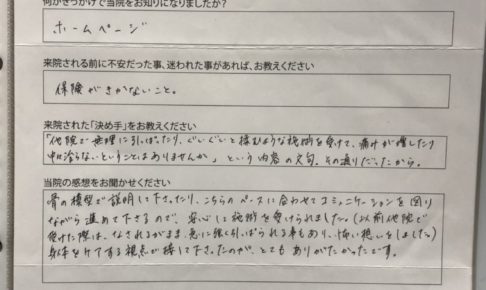 何がきっかけで当院をお知りになりましたか?
ホームページ
来院される前に不安だった事、迷われた事があれば、お教えください
保険がきかないこと。
来院された「決め手」をお教えください
「他院で無理に引っぱたり、ぐいぐいと揉むような施術を受けて、痛みが増したり
中々治らないということはありませんか」という内容の文句。その通りだったから。
当院の感想をお聞かせください
骨の模型で説明して下さったり、こちらのペースに合わせてコミュニケーションを図り
ながら進めて下さるので、安心して施術を受けられました。(以前他院で
受けた際は、なされるがまま急に強く引っぱられる事もあり、怖い想いをしました。)
身体をケアする視点で接して下さったのが、とてもありがたかったです。